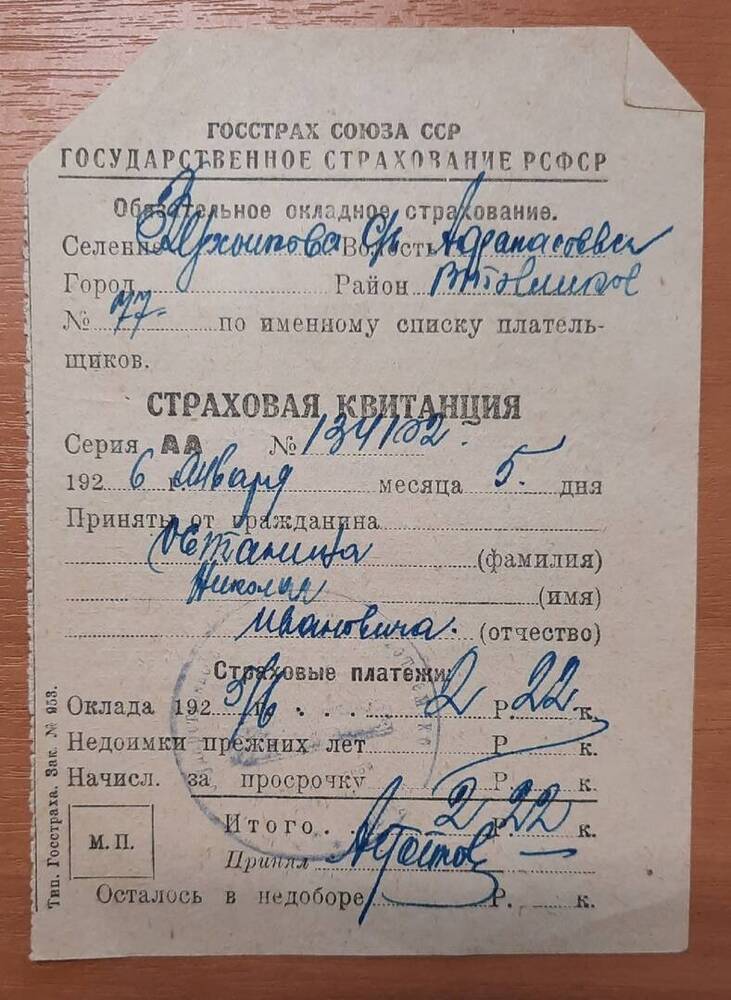 ГОССТРАХ СОЮЗА ССР
ГОСУДАРСТВЕННОЕ СТРАХОВАНИЕ РСФСР
Обязательное окладное страхование.
Селение Волость
Город Район
№ 77 по именному списку платель-
щиков.
СТРАХОВАЯ КВИТАНЦИЯ
Серия АА № 134102.
192 6 г. январь месяца 5. дня
Приняты от гражданина
Останица (фамилия)
Николая (имя)
Ивановича. (отчество)
Страховые платежи:
Оклада 192 5/6 г. 2 Р. 22 к.
Недоимки прежних лет Р. к.
Начисл. за просрочку Р. к.
Итого 2 Р. 22 к.
М. П.
Принял
Осталось в недоборе Р. к.
Тип. Госстраха. Зак. № 953.